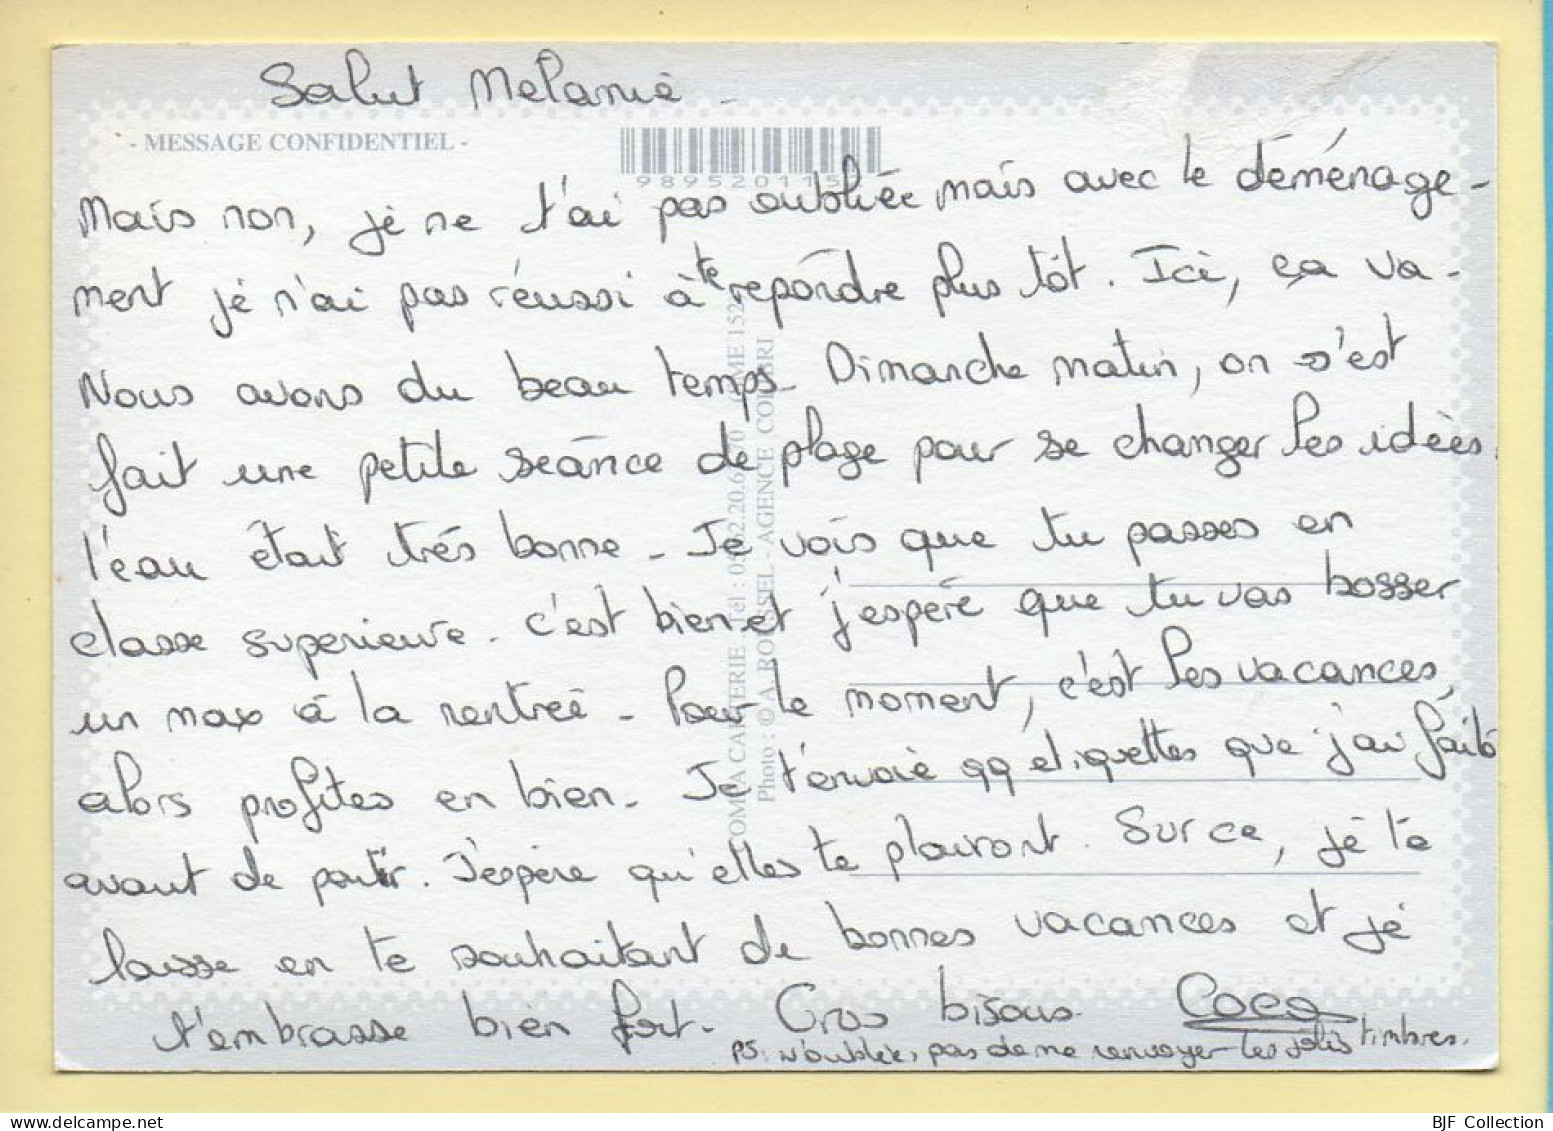 Salut Mélanie -
- MESSAGE CONFIDENTIEL -
989520115
Mais non, je ne t'ai pas oubliée mais avec le déménage-
ment je n'ai pas réussi à te répondre plus tôt. Ici, ça va -
Nous avons du beau temps - Dimanche matin, on s'est
fait une petite séance de plage pour se changer les idées.
l'eau était très bonne - Je vois que tu passes en
classe supérieure - c'est bien et j'espère que tu vas bosser
un max à la rentrée - Pour le moment, c'est les vacances,
alors profites en bien - Je t'envoie qq étiquettes que j'ai faits
avant de partir. J'espère qu'elles te plairont. Sur ce, je te
laisse en te souhaitant de bonnes vacances et je
t'embrasse bien fort. Gros bisous Coco
PS: N'oublies pas de me renvoyer les jolis timbres.
CARTERIE Tél : 05 62.20.6 70
Photo : © A. ROUSSEL - AGENCE COLIBRI
BJF Collection